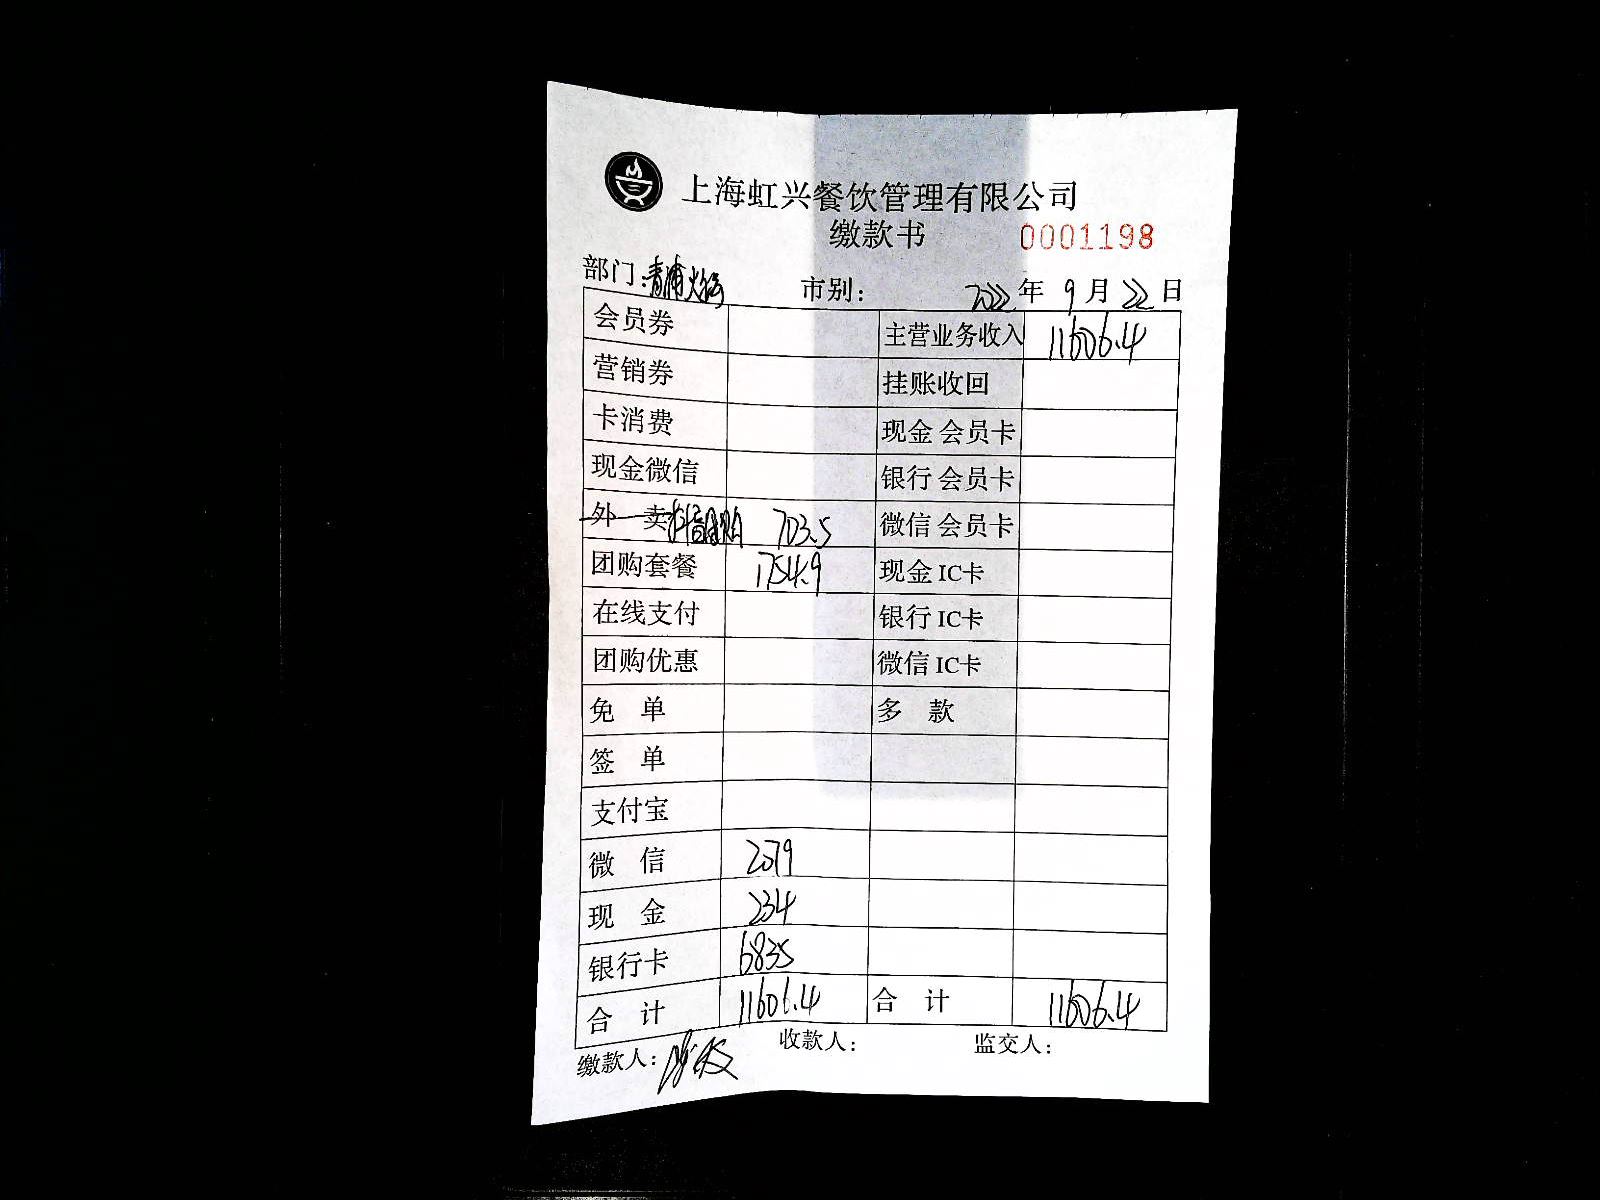 上海虹兴餐饮管理有限公司
缴款书 0001198
部门：青浦火锅 市别： 2022 年 9 月 22 日
会员券 主营业务收入 11606.4
营销券 挂账收回
卡消费 现金 会员卡
现金微信 银行 会员卡
外 卖 抖音团购 703.5 微信 会员卡
团购套餐 1754.9 现金 IC卡
在线支付 银行 IC卡
团购优惠 微信 IC卡
免 单 多 款
签 单
支付宝
微 信 2079
现 金 234
银行卡 6835
合 计 11606.4 合 计 11606.4
缴款人： 收款人： 监交人：